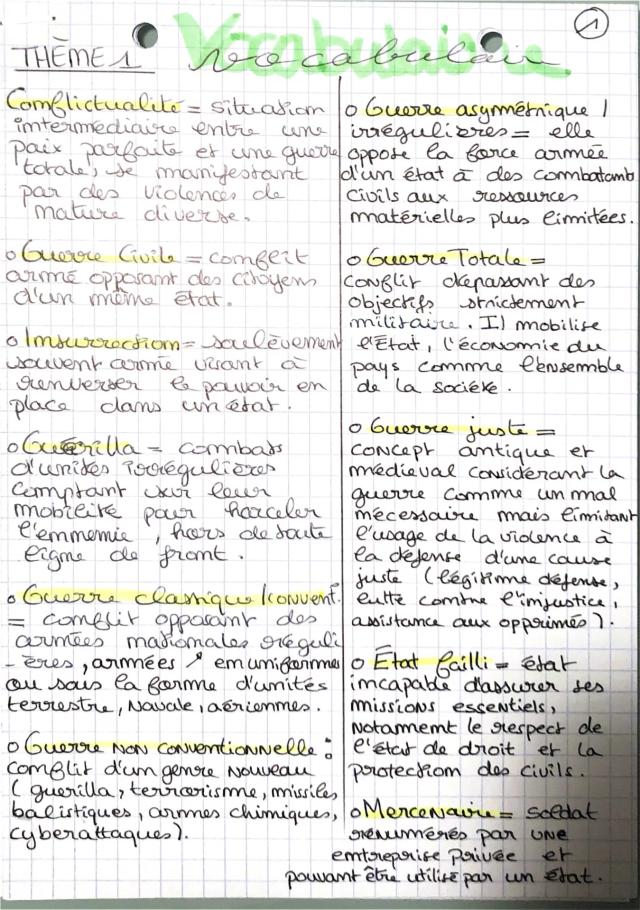 1
THÈME 1 Vocabulaire
Conflictualité = situation
intermédiaire entre une
paix parfaite et une guerre
totale, se manifestant
par des violences de
nature diverse.
o Guerre Civile = conflit
armé opposant des citoyens
d'un même état.
o Insurrection = soulèvement
souvent armé visant à
renverser le pouvoir en
place dans un état.
o Guérilla = combats
d'unités irrégulières
comptant sur leur
mobilité pour harceler
l'ennemie, hors de toute
ligne de front.
o Guerre classique / convent.
= conflit opposant des
armées nationales réguli
-ères, armées, en uniformes
ou sous la forme d'unités
terrestre, navale, aériennes.
o Guerre NON CONVENTIONNELLE :
conflit d'un genre nouveau
(guerilla, terrorisme, missiles
balistiques, armes chimiques,
cyberattaques).
o Guerre asymétrique /
irrégulières = elle
oppose la force armée
d'un état à des combatants
civils aux ressources
matérielles plus limitées.
o Guerre Totale =
conflit dépassant des
objectifs strictement
militaire. Il mobilise
l'État, l'économie du
pays comme l'ensemble
de la société.
o Guerre juste =
concept antique et
médieval considérant la
guerre comme un mal
nécessaire mais limitant
l'usage de la violence à
la défense d'une cause
juste (légitime défense,
lutte contre l'injustice,
assistance aux opprimés).
o État failli = état
incapable d'assurer ses
missions essentiels,
notamment le respect de
l'état de droit et la
protection des civils.
o Mercenaire = soldat
rénumérés par une
entreprise privée et
pouvant être utilisé par un état.